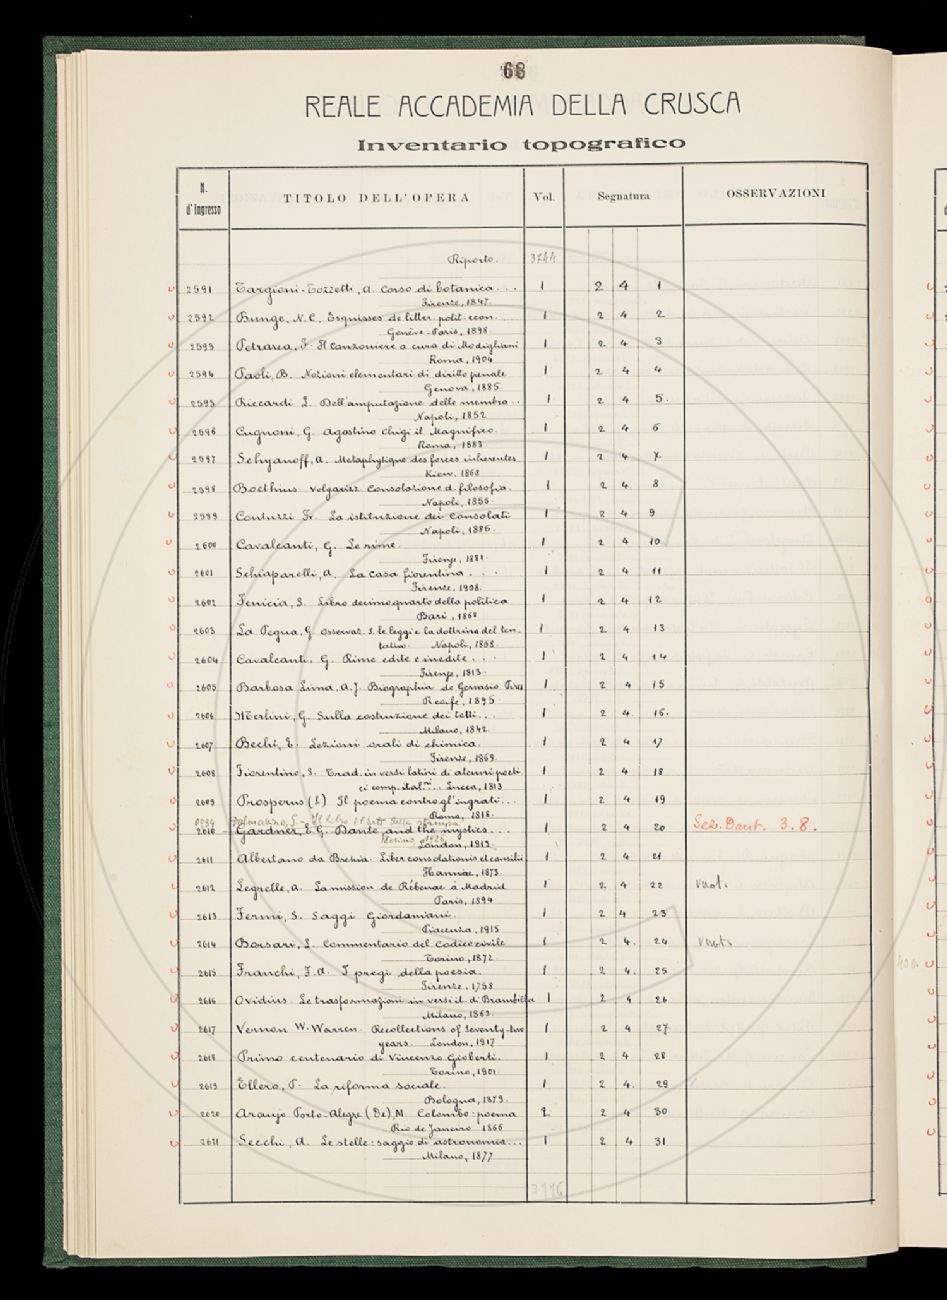 68
REALE ACCADEMIA DELLA CRUSCA
Inventario topografico
N. d'Ingresso TITOLO DELL'OPERA Vol. Segnatura OSSERVAZIONI
Riporto. 3744
2591 Targioni-Tozzetti, A. Corso di botanica... 1 2 4 1
Firenze, 1847.
2592 Bunge, N. C. Esquisses de litter. polit. econ. 1 2 4 2
Genève-Paris, 1898.
2593 Petrarca, F. Il Canzoniere a cura di Modigliani 1 2 4 3
Roma, 1904
2594 Paoli, B. Nozioni elementari di diritto penale 1 2 4 4
Genova, 1885
2595 Riccardi L. Dell'amputazione delle membra.. 1 2 4 5.
Napoli, 1852
2596 Cugnoni, G. Agostino Chigi il Magnifico. 1 2 4 6
Roma, 1883
2597 Schyanoff, A. Metaphytique des forces inherentes 1 2 4 7.
Kiew. 1868
2598 Boethius. Volgarizz. Consolazione d. filosofia. 1 2 4. 8
Napoli, 1856.
2599 Contuzzi Fr. La istituzione dei Consolati 1 2 4 9
Napoli, 1885.
2600 Cavalcanti, G. Le rime. 1 2 4 10
Firenze, 1881.
2601 Schiaparelli, A. La casa fiorentina... 1 2 4 11
Firenze, 1908.
2602 Fenicia, S. Libro decimoquarto della politica 1 2 4 12
Bari, 1868
2603 La Pegna, G. Osservaz. s. le leggi e la dottrina del ten- 1 2 4 13
tativo. Napoli, 1868.
2604 Cavalcanti, G. Rime edite e inedite... 1 2 4 14
Firenze, 1813.
2605 Barbosa Lima, A. J. Biographia de Gervasio Pires 1 2 4 15
Recife, 1895.
2606 Merlini, G. Sulla costruzione dei tetti... 1 2 4. 16.
Milano, 1842.
2607 Bechi, E. Lezioni orali di chimica. 1 2 4 17
Firenze, 1869.
2608 Fiorentino, S. Trad. in versi latini di alcuni poeti 1 2 4 18
ci comp. ital.ni.. Lucca, 1813
2609 Prosperus (S.) Il poema contro gl'ingrati... 1 2 4 19
Roma, 1818.
Il libro e l'arte della stampa
2610 Gardner, E. G. Dante and the mystics... 1 2 4 20 Sez. Dant. 3. 8.
Torino, 1926
London, 1913.
2611 Albertano da Brescia. Liber consolationis et consilii 1 2 4 21
Hanniae, 1873.
2612 Legrelle, A. La mission de Rébenac à Madrid 1 2 4 22 vuot.
Paris, 1894
2613 Fermi, S. Saggi Giordaniani. 1 2 4 23
Piacenza, 1915
2614 Borsari, L. Commentario del Codice civile 1 2 4. 24 vuoto
Torino, 1872.
2615 Franchi, F. A. I pregi della poesia. 1 2 4. 25
Firenze, 1758
2616 Ovidius. Le trasformazioni in versi it. di Brambilla 1 2 4 26
Milano, 1863.
2617 Vernon W. Warren. Recollections of seventy-two 1 2 4 27.
years. London, 1917
2618 Primo centenario di Vincenzo Gioberti. 1 2 4 28
Torino, 1901.
2619 Ellero, P. La riforma sociale. 1 2 4. 29
Bologna, 1879.
2620 Araujo Porto-Alegre (De), M. Colombo: poema 2 2 4 30
Rio de Janeiro 1866
2621 Secchi, A. Le stelle: saggio di astronomia... 1 2 4 31
Milano, 1877
3776